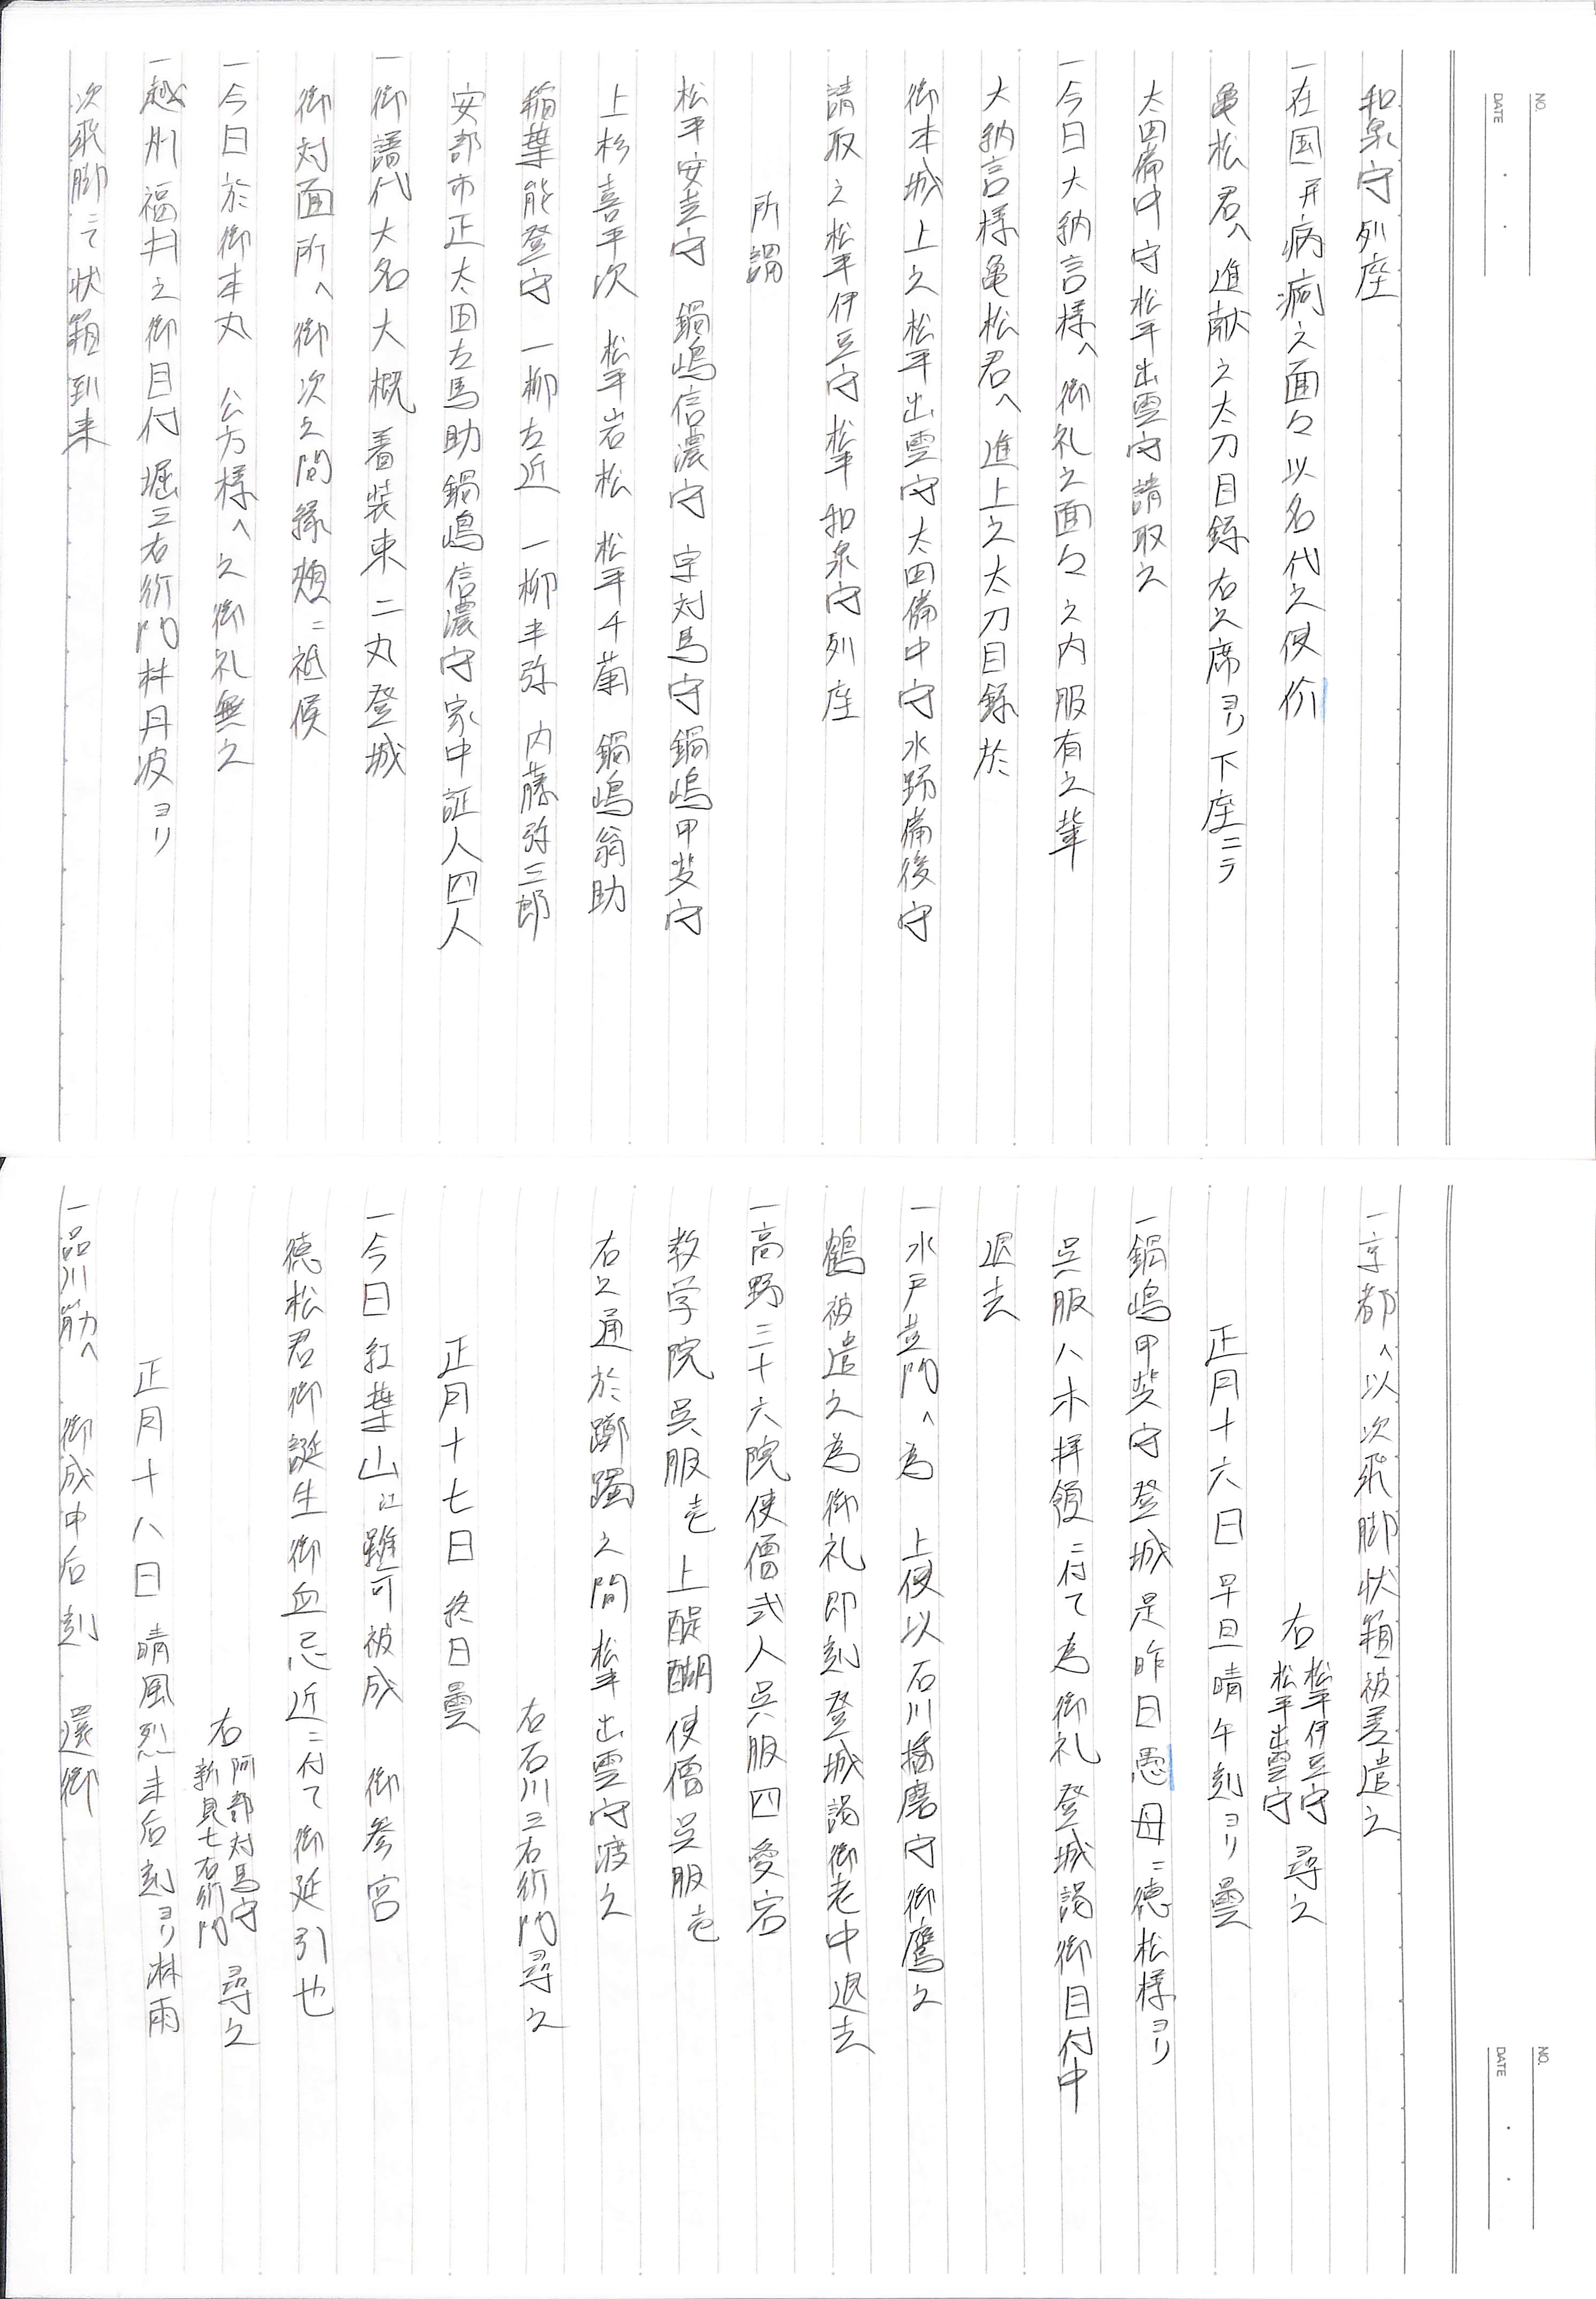 NO.
DATE
和泉守列座
一在国并病痾之面々以名代之使价
亀松君へ進献之太刀目録右之席ヨリ下座ニテ
太田備中守松平出雲守請取之
一今日大納言様へ御礼之面々之内服有之輩
大納言様亀松君へ進上之太刀目録於
御本城上之松平出雲守太田備中守水野備後守
請取之松平伊豆守松平和泉守列座
所謂
松平安芸守 鍋嶋信濃守 宗対馬守 鍋嶋甲斐守
上杉喜平次 松平岩松 松平千菊 鍋嶋翁助
稲葉能登守 一柳左近 一柳半弥 内藤弥三郎
安部市正 太田左馬助 鍋嶋信濃守家中証人四人
一御譜代大名大概着装束二丸登城
御対面所へ御次之間縁頬ニ祗候
一今日於御本丸 公方様へ之御礼無之
一越州福井之御目付堀三右衛門林丹波ヨリ
次飛脚ニて状箱到来
NO.
DATE
一京都へ以次飛脚状箱被差遣之
右 松平伊豆守 松平出雲守 尋之
正月十六日 早旦晴午刻ヨリ曇
一鍋嶋甲斐守登城是昨日愚母ニ徳松様ヨリ
呉服八木拝領ニ付て為御礼登城謁御目付中
退去
一水戸黄門へ為 上使以石川播磨守御鷹之
鶴被遣之為御礼即刻登城謁御老中退去
一高野三十六院使僧弐人呉服四愛宕
教学院呉服壱上醍醐使僧呉服壱
右之通於躑躅之間松平出雲守渡之
右石川三右衛門尋之
正月十七日 終日曇
一今日紅葉山江雖可被成 御参宮
徳松君御誕生御血忌近ニ付て御延引也
右 阿部対馬守 新見七右衛門 尋之
正月十八日 晴風烈未后刻ヨリ淋雨
一品川筋へ 御成申后刻 還御